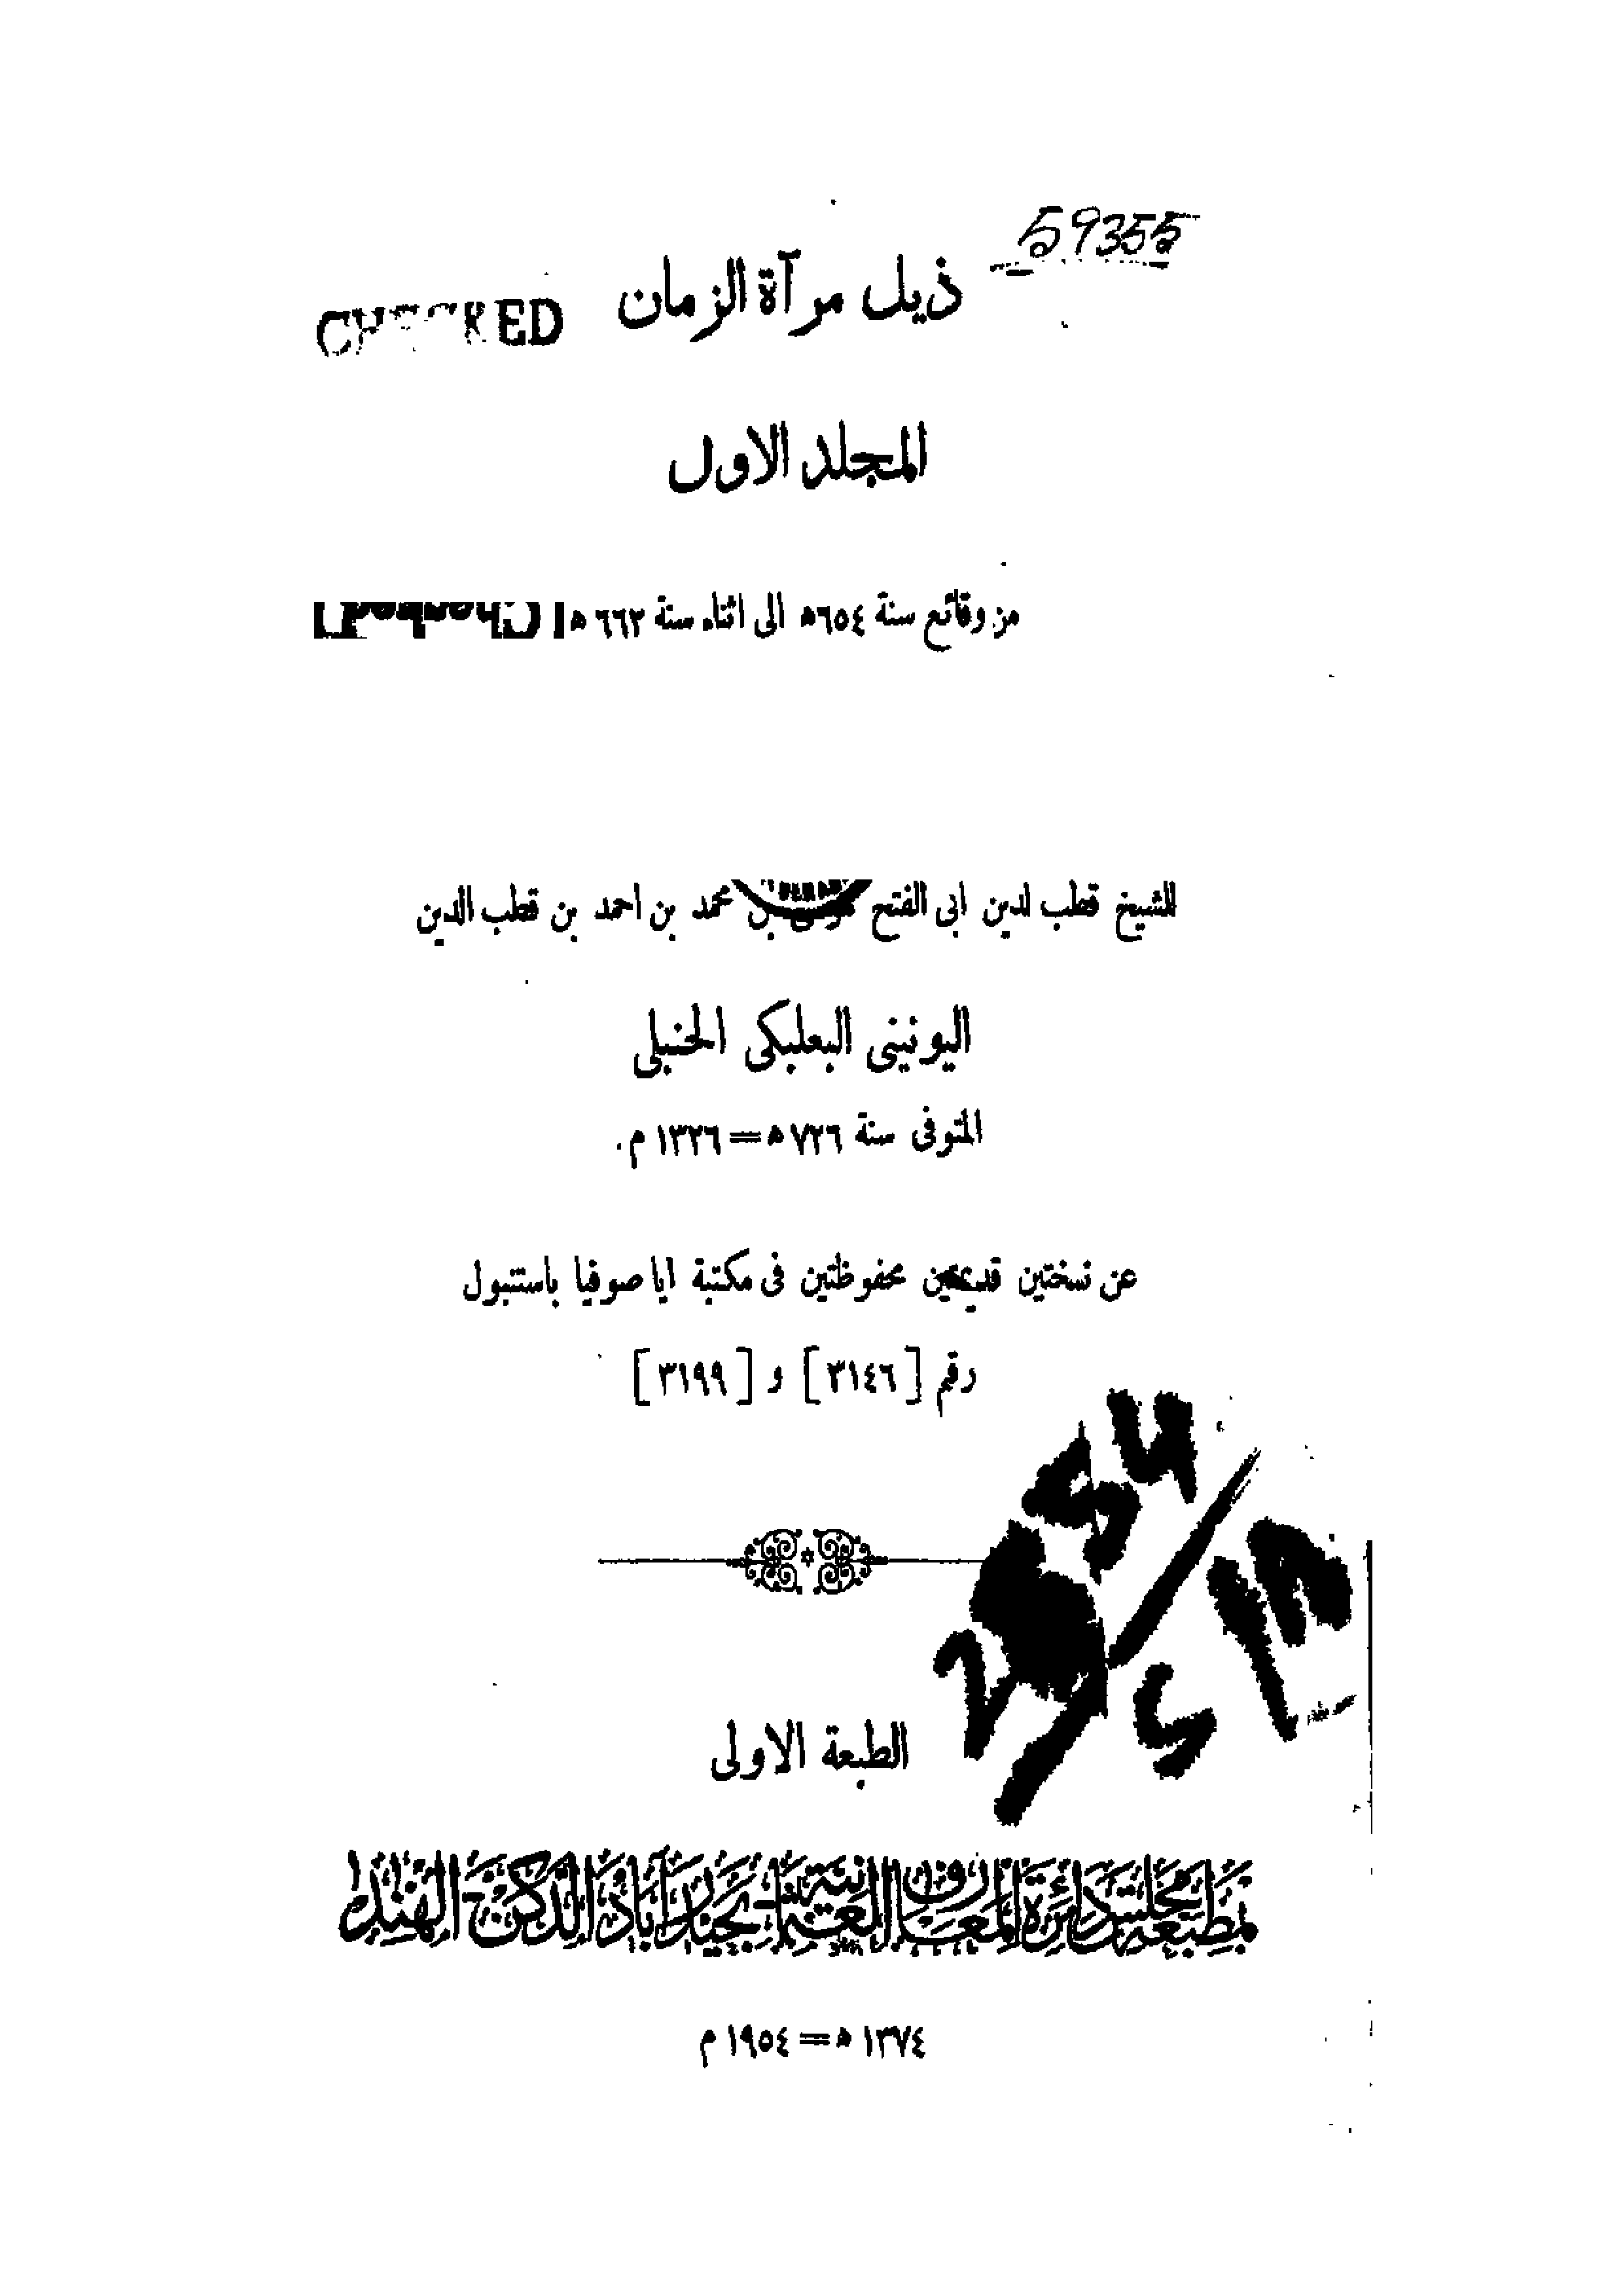 59355
ذيل مرآة الزمان
CHECKED
المجلد الاول
من وقائع سنة ٦٥٤ھ الى اثناء سنة ٦٦٢ ھ
Checked
للشيخ قطب لدين ابى الفتح موسى بن محمد بن احمد بن قطب الدين
اليونينى البعلبكى الحنبلى
المتوفى سنة ٧٢٦ ھ = ١٣٢٦ م.
عن نسختين قديمتين محفوظتين فى مكتبة ايا صوفيا باستنبول
رقم [٣١٤٦] و [٣١٩٩]
الطبعة الاولى
بمطبعة مجلس دائرة المعارف العثمانية بحيدرآباد الدكن الهند
١٣٧٤ ھ = ١٩٥٤ م